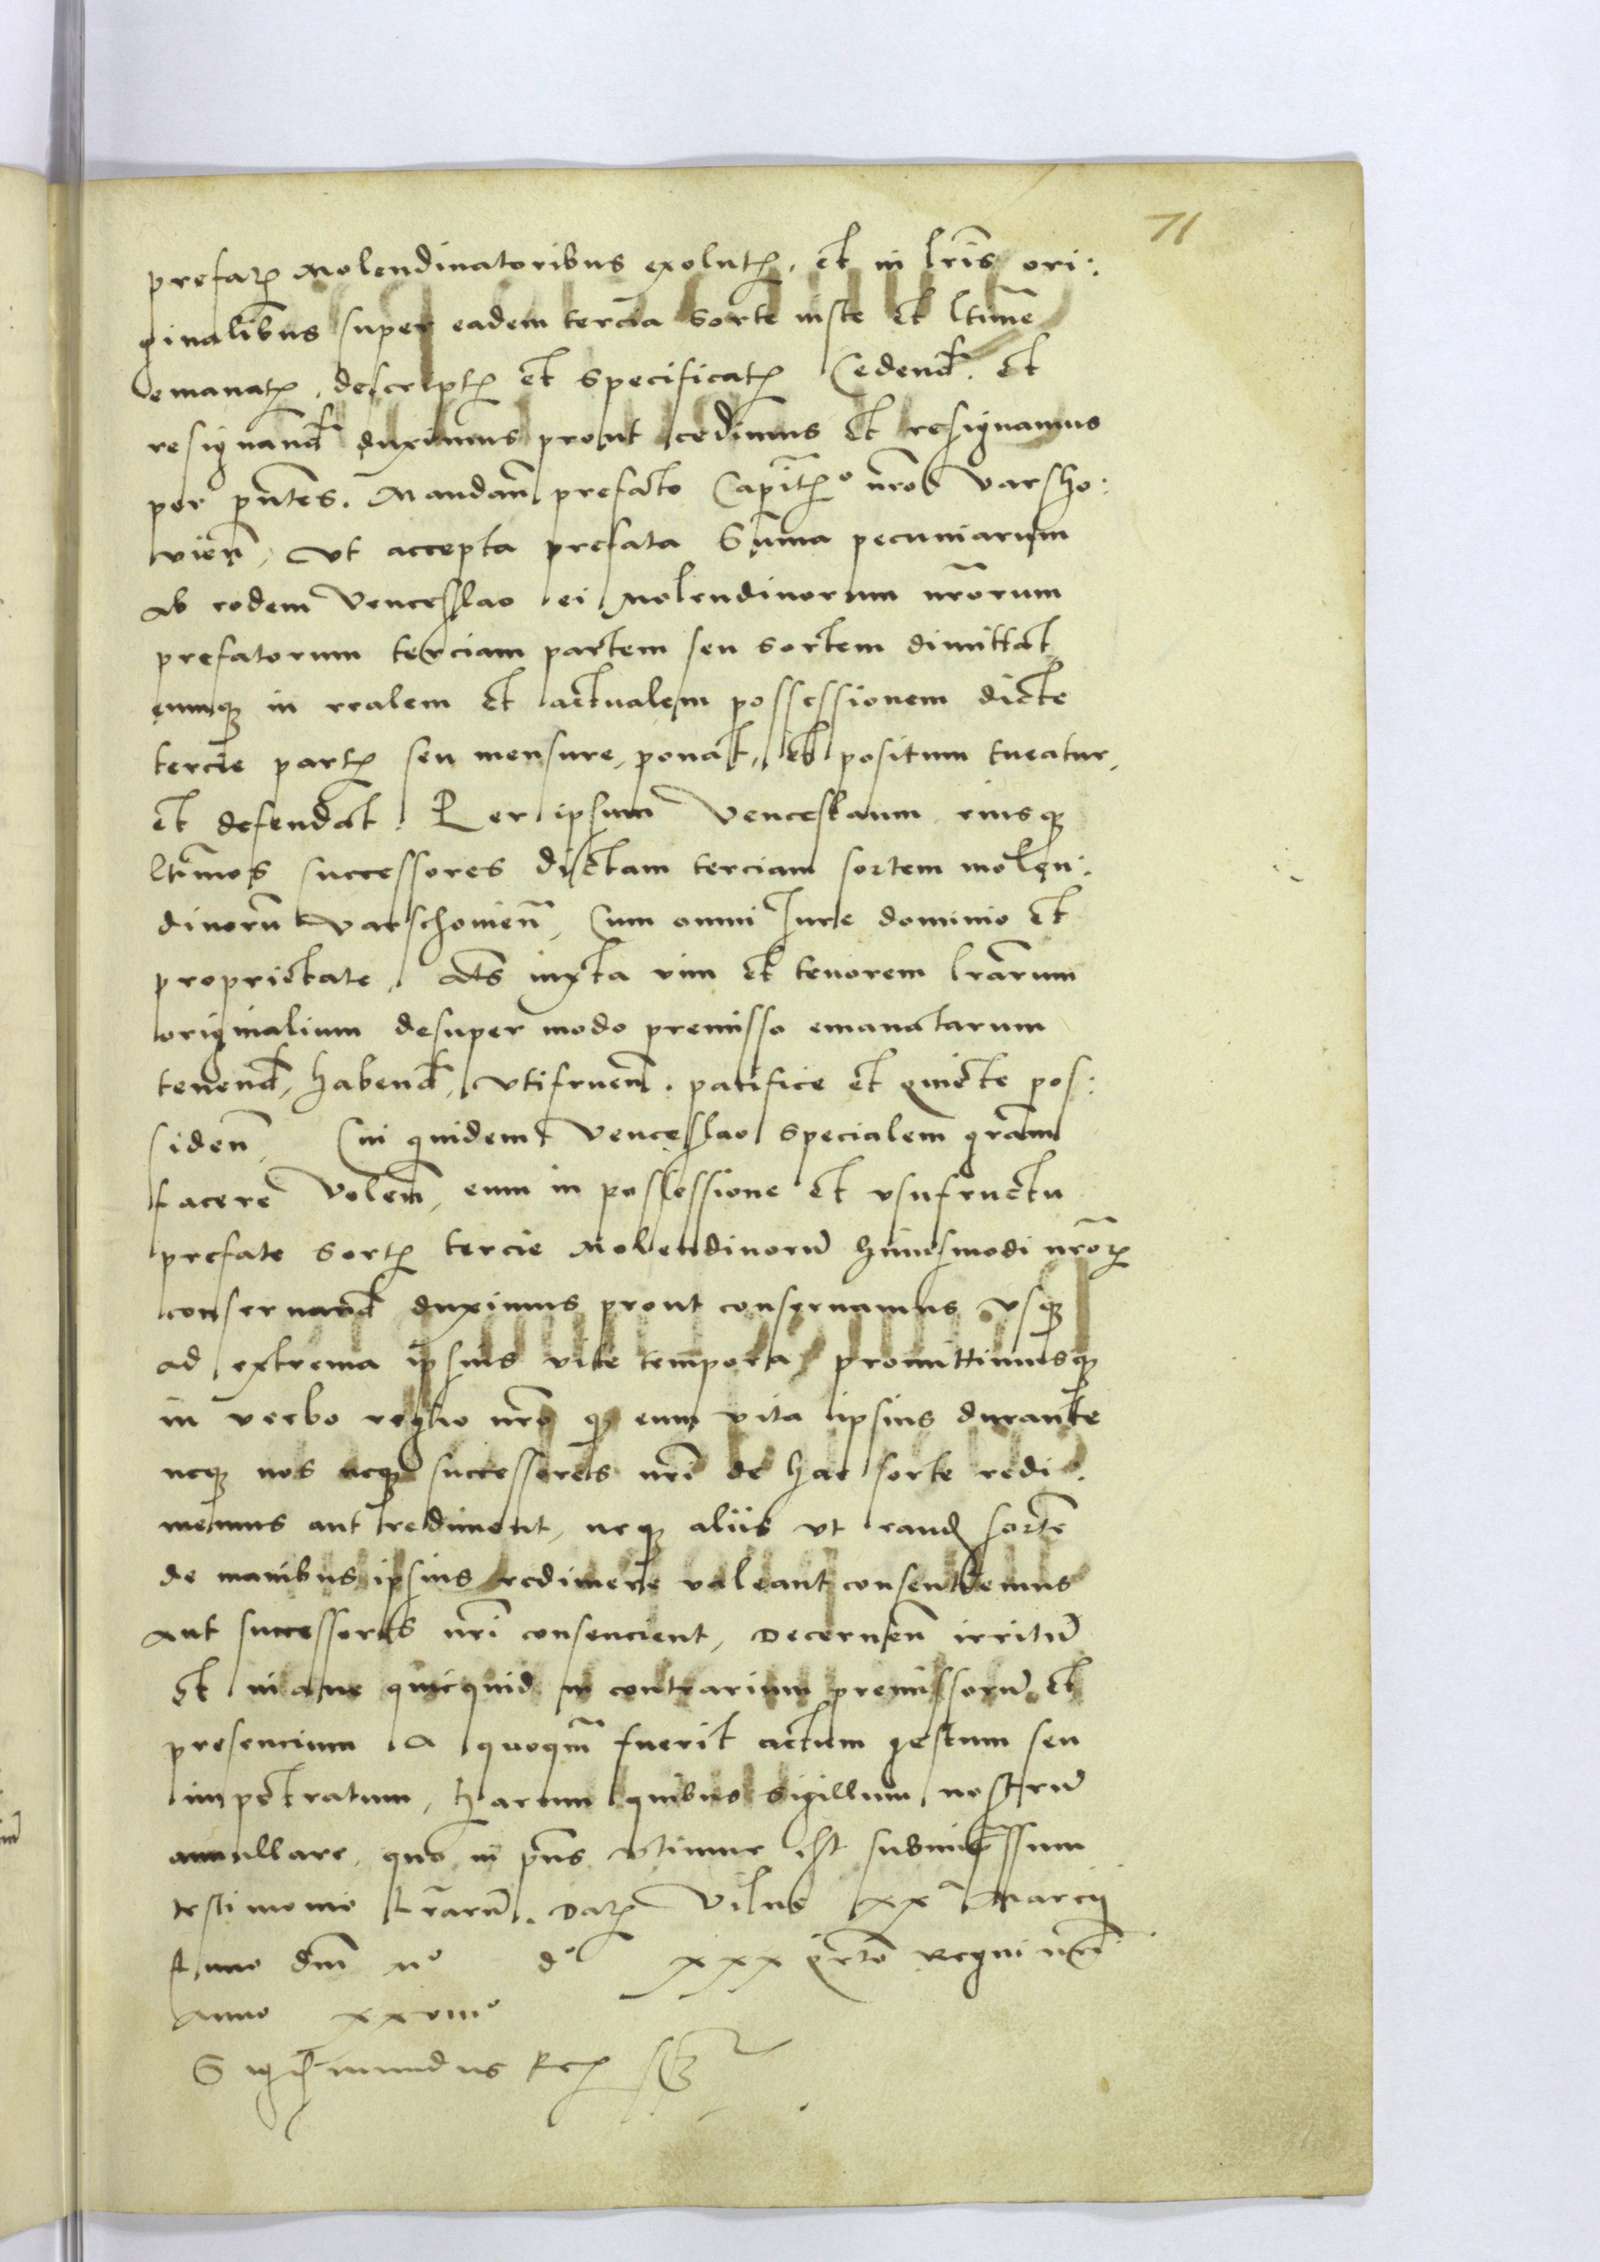 71
prefat molendinatoribus exolut, et in lris ori:
ginalibus super eadem tercia sorte iuste et ltime
emanat, descript et specificat Cedend et
resignand duximus prout cedimus et resignamus
per pntes. Mandan prefato Capit° nro varsho:
vien, vt accepta prefata Summa pecuniarum
ab eodem venceslao ei molendinorum nrorum
prefatorum terciam partem seu sortem dimittat
eumq in realem et actualem possessionem dicte
tercie part seu mensure, ponat, et positum tueatur,
et defendat. Per ipsum Venceslaum eiusq
ltimos successores dictam terciam sortem molen:
dinoru varschovien, Cum omni Jure dominio et
proprietate, Ats iuxta vim et tenorem lrarum
originalium desuper modo premisso emanatarum
tenend, habend, vtifruen. pacifice et quiete pos:
siden, Cui quidem Venceslao specialem gram
facere volen, eum in possessione et vsufructu
prefate sort tercie molendinoru huiusmodi nror
conservand duximus prout conservamus vsq
ad extrema ipsius vite tempora, promittimusq
in verbo regio nro q eum vita ipsius durante
neq nos neq successores nri de hac sorte redi:
memus aut rediment, neq aliis vt eand sorte
de manibus ipsius redimere valeant consentiemus
aut successores nri consencient, Decernen irritu
et inane quicquid in contrarium premissoru et
presencium A quoqm fuerit actum gestum seu
impetratum, harum quibus sigillum nostru
annullare, quo in pns vtimur est subimpssum
testimonio Lraru. Dat Vilne xx marcij
Anno dni M° d° xxx qrto Regni nri
Anno xxviii°
Sigismundus Rex sst